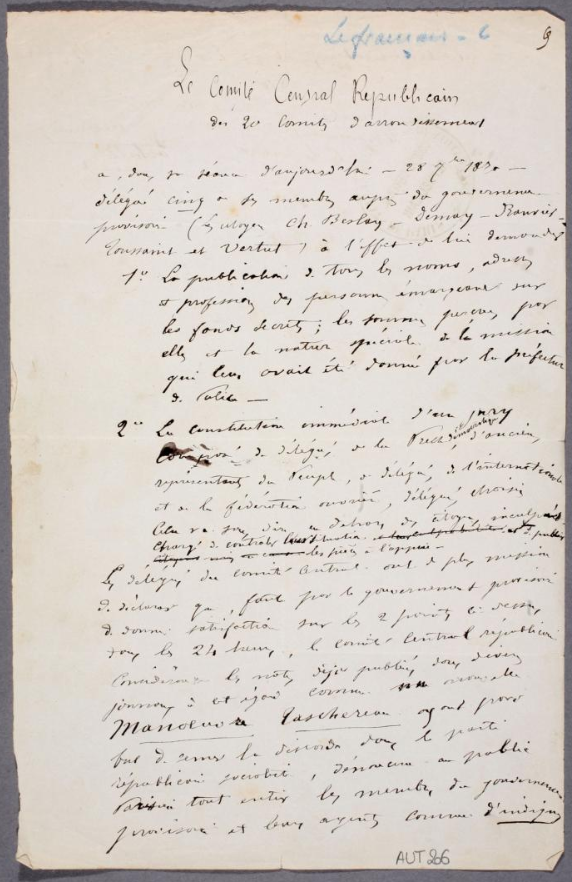 Lefrançais - 6
Le Comité Central Républicain
des 20 Comités d'arrondissement
a, dans sa séance d'aujourd'hui - 28 7bre 1870 -
délégué cinq de ses membres auprès du gouvernement
provisoire (les citoyens Ch. Beslay - Demay -
Toussaint et Vertut) à l'effet de lui demander
1° La publication de tous les noms, adresses
et professions des personnes émargeant sur
les fonds secrets ; les sommes perçues par
elles et la nature spéciale de la mission
qui leur avait été donnée par la préfecture
de Police -
2° La constitution immédiate d'un jury
composé de délégués de la Presse démocratique, d'anciens
représentants du Peuple, de délégués de l'internationale
et de la fédération ouvrière, délégués choisis
en dehors des citoyens inculpés
chargé de contrôler
les pièces à l'appui -
Les délégués du comité central ont de plus mission
de déclarer que, faute par le gouvernement provisoire
de donner satisfaction sur les 2 points ci-dessus
dans les 24 heures, le comité central républicain
considérera les notes déjà publiées dans divers
journaux à cet égard comme une nouvelle
Manoeuvre Taschereau ayant pour
but de semer la discorde dans le parti
républicain socialiste, dénoncera au public
Parisien tout entier les membres du gouvernement
provisoire et leurs agents comme d'indignes
AUT 266